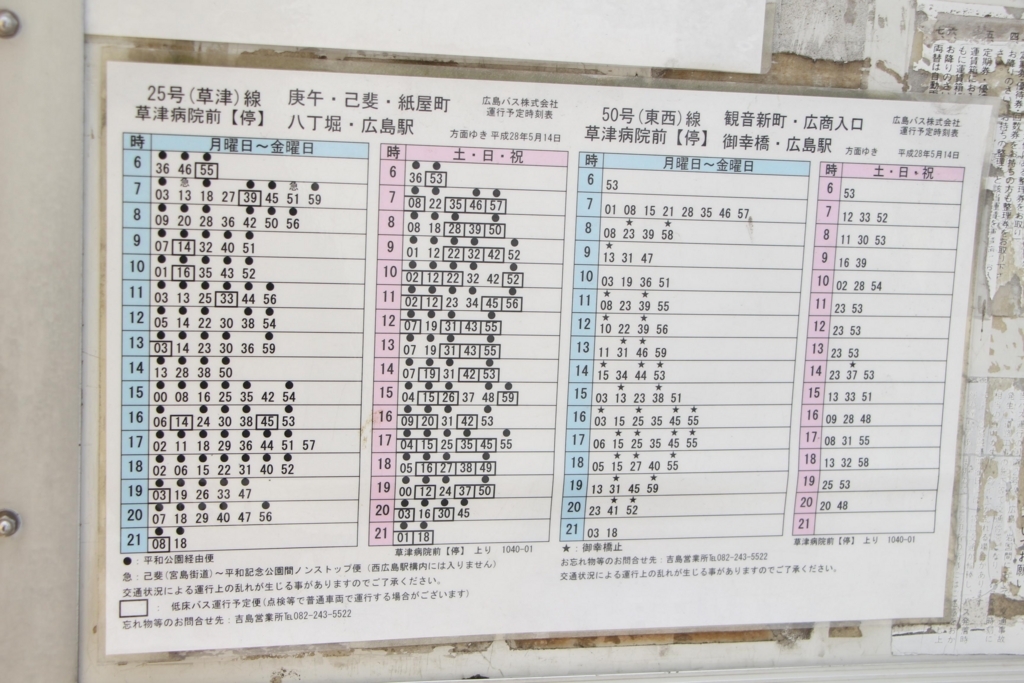 25号(草津)線 庚午・己斐・紙屋町 広島バス株式会社
運行予定時刻表
草津病院前【停】 八丁堀・広島駅 方面ゆき 平成28年5月14日
時 月曜日～金曜日
6 36 46 55
7 急 急
03 13 18 27 39 45 51 59
8 09 20 28 36 42 50 56
9 07 14 32 40 51
10 01 16 35 43 52
11 03 13 25 33 44 56
12 05 14 22 30 38 54
13 03 14 23 30 36 59
14 13 28 38 50
15 00 08 16 25 35 42 54
16 06 14 24 30 38 45 53
17 02 11 18 29 36 44 51 57
18 02 06 15 22 31 40 52
19 03 19 26 33 47
20 07 18 29 40 47 56
21 08 18
時 土・日・祝
6 36 53
7 08 22 35 46 57
8 08 18 28 39 50
9 01 12 22 32 42 52
10 02 12 22 32 42 52
11 02 12 23 34 45 56
12 07 19 31 43 55
13 07 19 31 43 55
14 07 19 31 42 53
15 04 15 26 37 48 59
16 09 20 31 42 53
17 04 15 25 35 45 55
18 05 16 27 38 49
19 00 12 24 37 50
20 03 16 30 45
21 01 18
草津病院前【停】 上り 1040-01
●：平和公園経由便
急：己斐(宮島街道)～平和記念公園間ノンストップ便(西広島駅構内には入りません)
交通状況による運行上の乱れが生じる事がありますのでご了承ください。
： 低床バス運行予定便(点検等で普通車両で運行する場合がございます)
忘れ物等のお問合せ先：吉島営業所℡082-243-5522
50号(東西)線 観音新町・広商入口 広島バス株式会社
運行予定時刻表
草津病院前【停】 御幸橋・広島駅 方面ゆき 平成28年5月14日
時 月曜日～金曜日
6 53
7 01 08 15 21 28 35 46 57
8 08 23 39 58
9 13 31 47
10 03 19 36 51
11 08 23 39 55
12 10 22 39 56
13 11 31 46 59
14 15 34 44 53
15 03 13 23 38 51
16 03 15 25 35 45 55
17 06 15 25 35 45 55
18 05 15 27 40 55
19 13 31 45 59
20 23 41 52
21 03 18
時 土・日・祝
6 53
7 12 33 52
8 11 30 53
9 16 39
10 02 28 54
11 23 53
12 23 53
13 23 53
14 23 37 53
15 13 33 51
16 09 28 48
17 08 31 55
18 13 32 58
19 25 53
20 20 48
21
草津病院前【停】 上り 1040-01
★：御幸橋止
お忘れ物等のお問合せ先：吉島営業所℡082-243-5522
交通状況による運行上の乱れが生じる事がありますのでご了承ください。